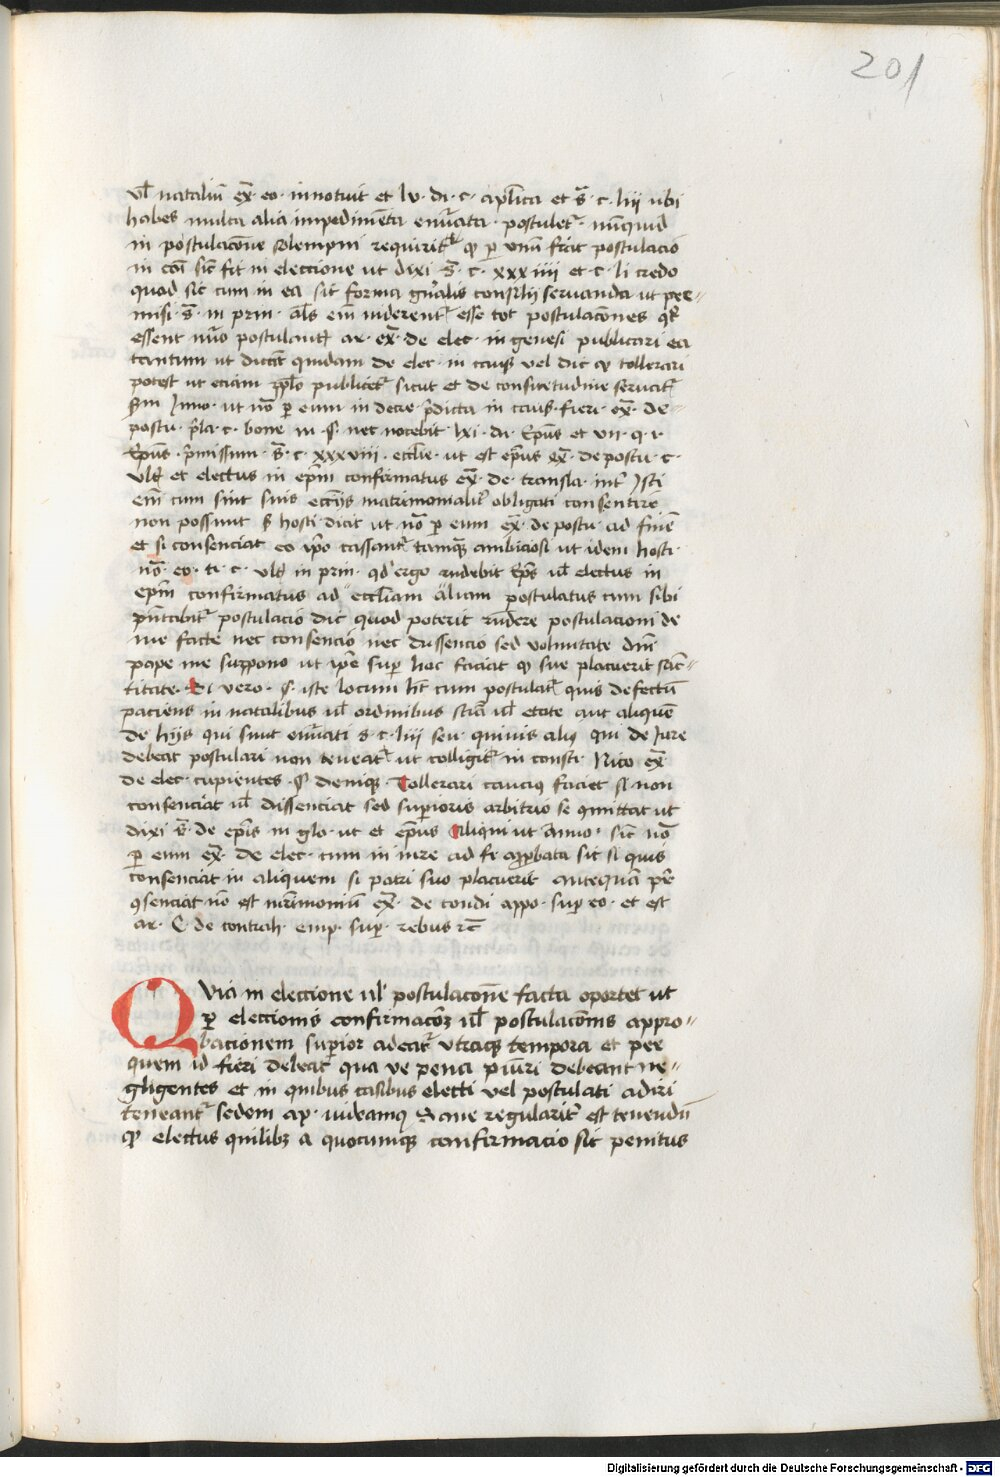 201
vel nataliū ex̄ eo innotuit et lv di c aplica et s̄ c liij ubi
habes multa alia impedimēta enūata postulet nūquid
in postulacōne solempni requirit̄ ꝙ ꝑ vnū fiat postulacio
in cōi sic̄ fit in eleccione ut dixi s̄ c xxxiiii et c li credo
quod sic cum in ea sit forma gn̄alis consilij seruanda ut per-
misi s̄ in prin als em̄ viderent̄ esse tot postulacōnes qt̄
essent nūo postulantes ar ex̄ de elec in genesi publicari ea
tantum ut dictāt quidam de elec in causis vel dic ꝙ tollerari
potest ut eciam publicet̄ sicut et de consuetudine seruat̄
scđm Inno ut nō ꝑ eum in decre p̄dicta in causis fieri ex̄ de
postu p̄la c bone in § nec nocebit lxi di Ep̄us et vii q i
Ep̄us p̄missum s̄ c xxxviii ecclie ut est ep̄us ex̄ de postu c
vlt̄ et electus in ep̄m confirmatus ex̄ de transla int̄ Isti
em̄ cum sint suis ecclijs matrimonialit̄ obligati consentire
non possunt s̄ hosti dicit ut nō ꝑ eum ex̄ de postu ad finē
et si consenciat eo ip̄o cassant̄ tamqȝ ambiciosi ut idem hosti
nō eo ti c vlt̄ in prin qd ergo rn̄debit Ep̄s ul̄ electus in
ep̄m confirmatus ad eccliam aliam postulatus cum sibi
pn̄tabit̄ postulacio dic quod poterit rn̄dere postulacioni de
me facte nec consencio nec dissencio sed voluntate dn̄i
pape me suppono ut ip̄e sup hoc faciat ꝙ sue placuerit sanc-
titate Et vero § iste locum h̄t cum postulat̄ quis defectū
paciens in natalibus ul̄ ordinibus sciā ul̄ etate aut aliquē
de hijs qui sunt enūati s̄ c liij seu quiuis aliꝰ qui de iure
debeat postulari non teneat̄ ut colligit̄ in consti Nico ex̄
de elec cupientes § deniqȝ Tollerari caucius faciet si non
consenciat ul̄ dissenciat sed superioris arbitrio se ꝯmittat ut
dixi s̄ de ep̄is in glo ut et ep̄us Aliqui ut Anno sic nō
ꝑ eum ex̄ de elec cum in iure ad fi approbata sit si quis
consenciat in aliquem si patri suo placuerit antequā pr̄e
ꝯsenciat nō est mr̄imoniū ex̄ de condi appo sup eo et est
ar C de contrah emp sup rebus rc̄
Quia in eleccione ul̄ postulacōne facta oportet ut
ꝓ eleccionis confirmacōe ul̄ postulacōnis appro-
bacionem superior adeat̄ vtraqȝ tempora et per
quem id fieri debeat̄ qua ve pena puniri debeant ne-
gligentes et in quibus casibus electi vel postulati adiri
teneant̄ sedem ap videamꝰ Sane regularit̄ est tenendū
ꝙ electus quilibȝ a quocumqȝ confirmacio sit penitus
Digitalisierung gefördert durch die Deutsche Forschungsgemeinschaft - DFG